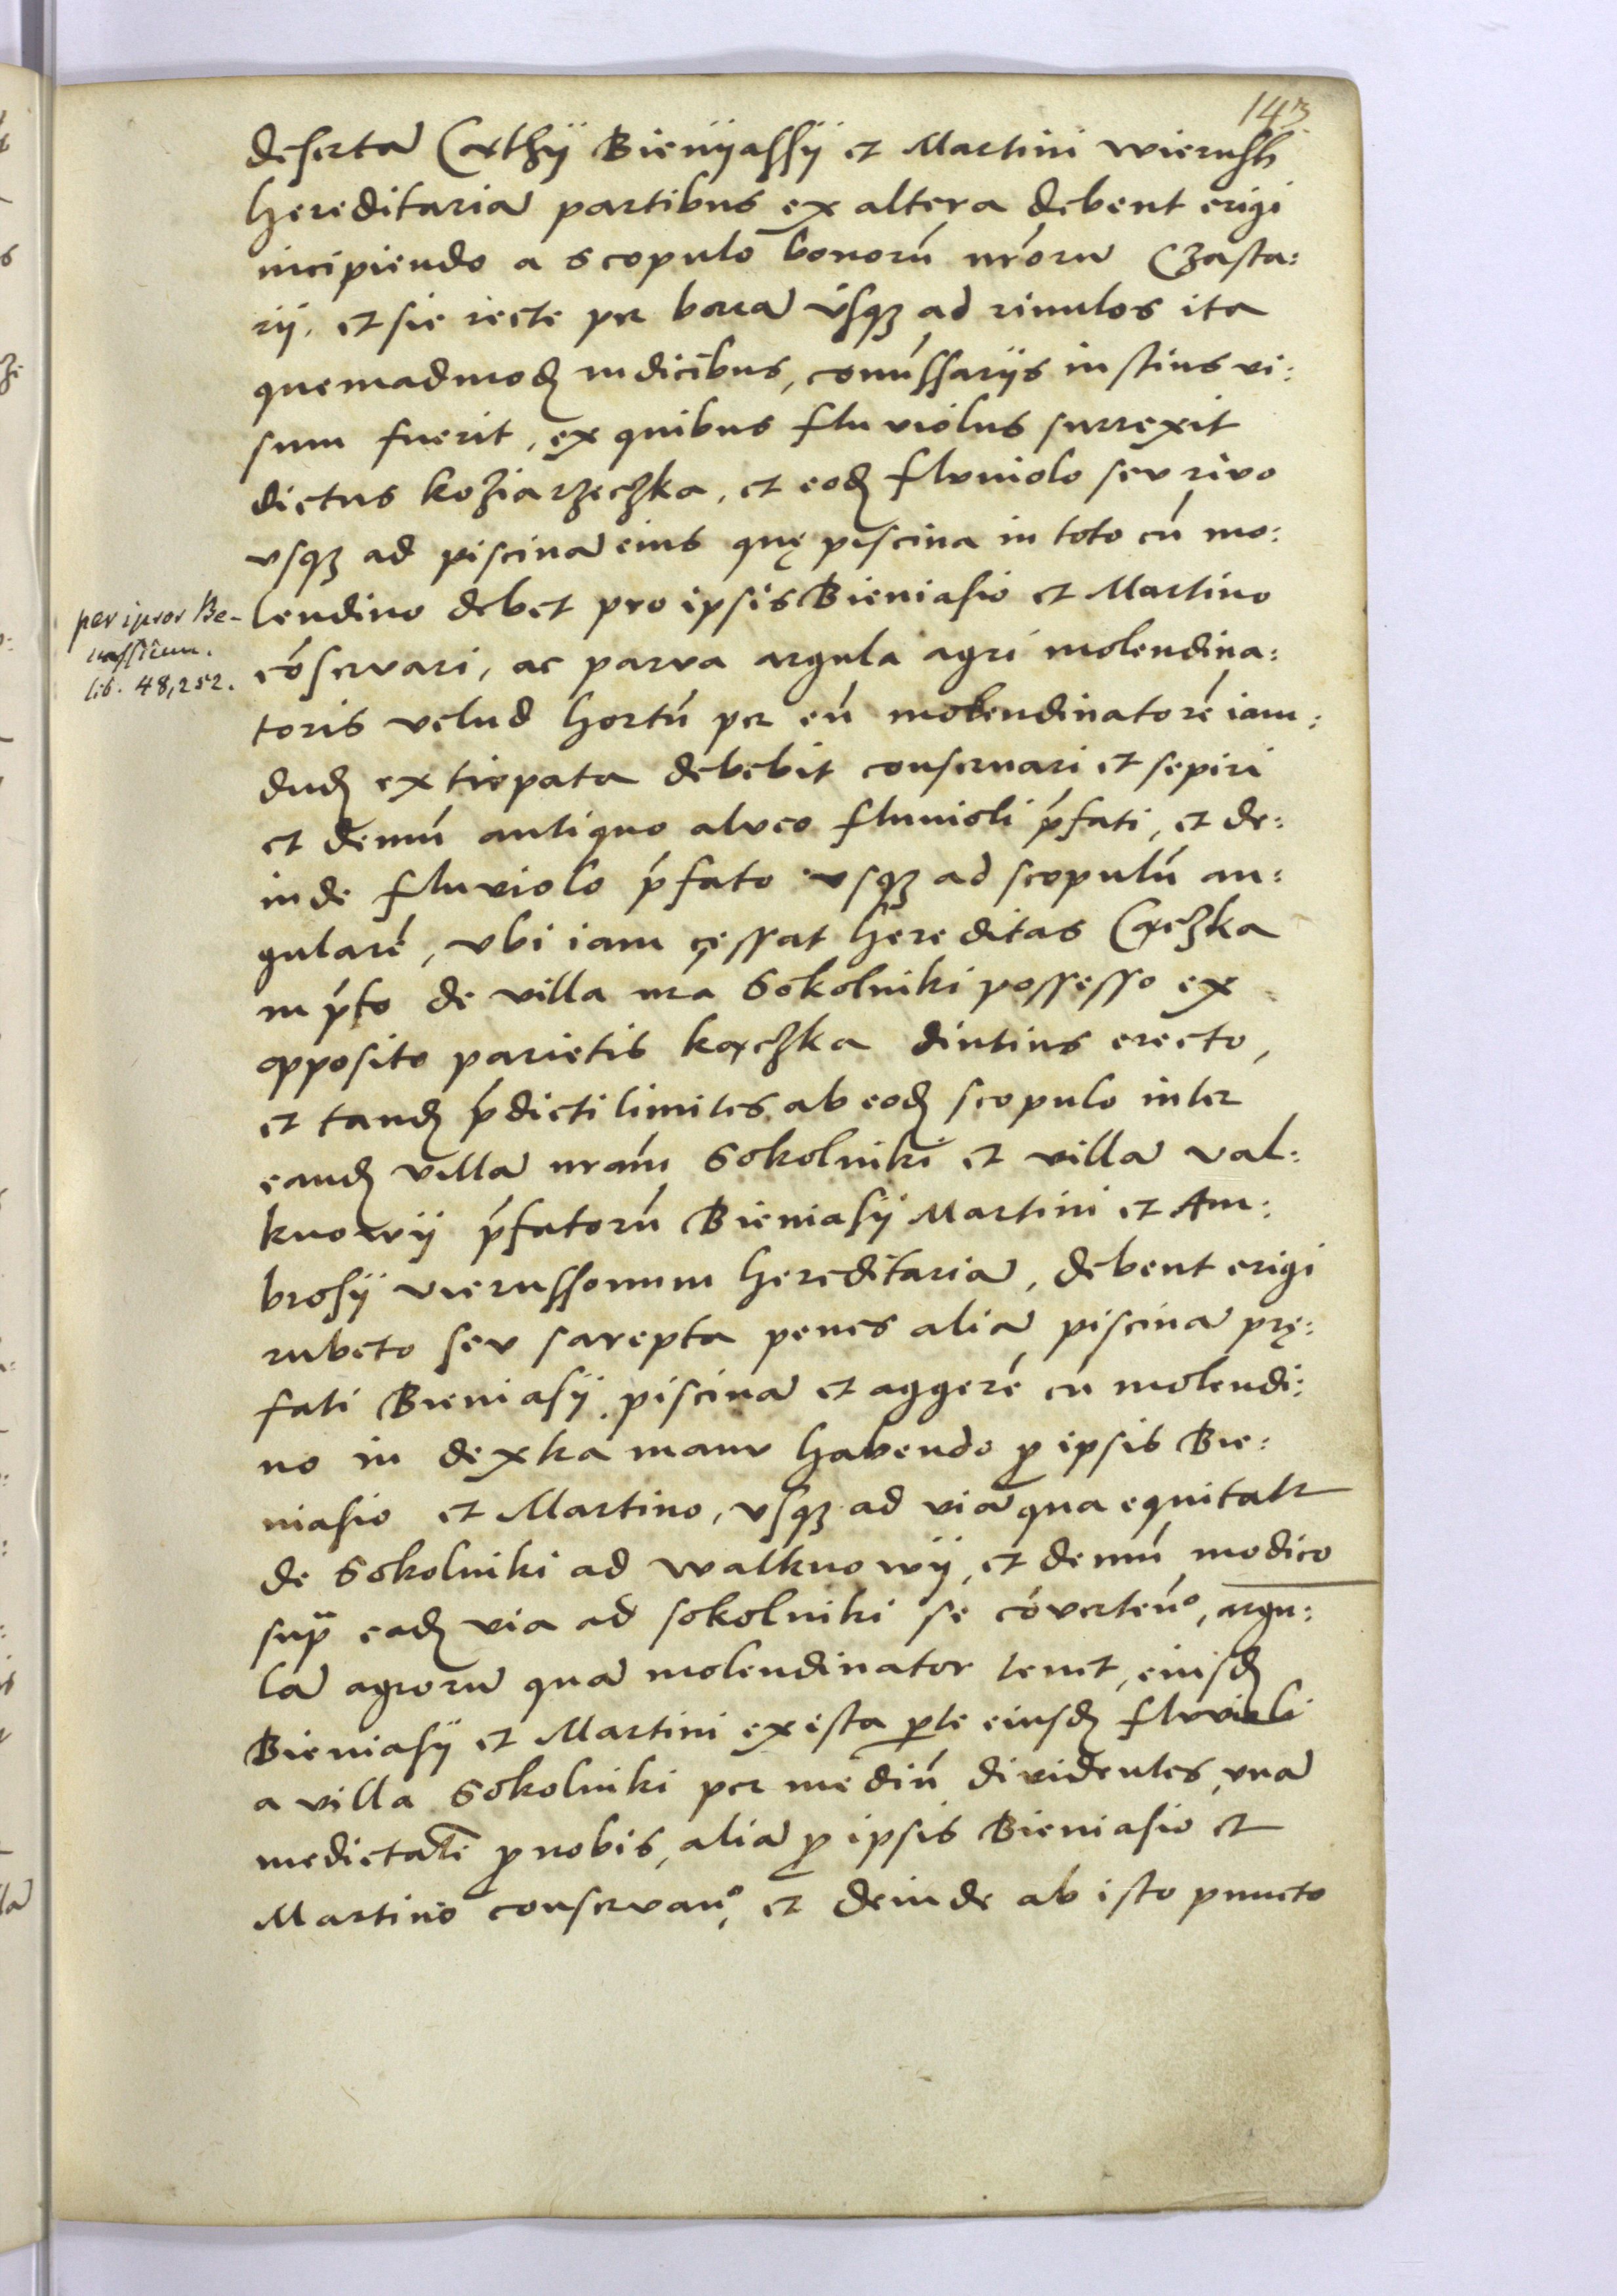 143
desertā Cathÿ Bienÿassÿ et Martini wierussh
hereditariā partibus ex altera debent erigi
incipiendo a scopulo bonorū nr̄orū Czasta:
rÿ, et sic recte per borrā vsqȝ ad rivulos ita
quemadmodȝ iudicibus, com̄issarÿs iustius vi:
sum fuerit, ex quibus fluviolus surrexit
dictus koziarzeczka, et eodȝ fluviolo sev rivo
vsqȝ ad piscinā eius quę piscina in toto cū mo:
lendino debet pro ipsis Bieniasio et Martino
cōservari, ac parva argula agri molendina:
toris velud hortū per eū molendinatorē iam:
dudȝ extirpata debebit conservari et sepiri
et demū antiquo alveo fluvioli p̄fati, et de:
inde fluviolo p̄fato vsqȝ ad scopulū an:
gularē, vbi iam cessat hereditas Caczka
in p̄to de villa nr̄a Sokolniki possesso ex
opposito parietis kaczka diutius erecto,
et tandȝ p̄dicti limites ab eodȝ scopulo inter
eandȝ villā nrām Sokolniki et villā val:
knowÿ p̄fatorū Bieniasÿ Martini et Am:
brosÿ vierussonum hereditariā, debent erigi
rubeto sev sarepta penes aliā piscinā prę:
fati Bieniasÿ piscinā et aggerē cū molendi:
no in dextra manv habendo p ipsis Bie:
niasio et Martino, vsqȝ ad viā qua equitatr
de Sokolniki ad walknowÿ, et demū modico
supra eadȝ via ad sokolniki se cōvertēn°, argu:
lā agrorū quā molendinator tenet, eiusdȝ
Bieniasÿ et Martini ex ista p̄te eiusdȝ fluvioli
a villa Sokolniki per mediū dividentes, vnā
medietatē p nobis, aliā p ipsis Bieniasio et
Martino conservan°, et deinde ab isto puncto
per ipsos Be-
nassium.
lib. 48,252.